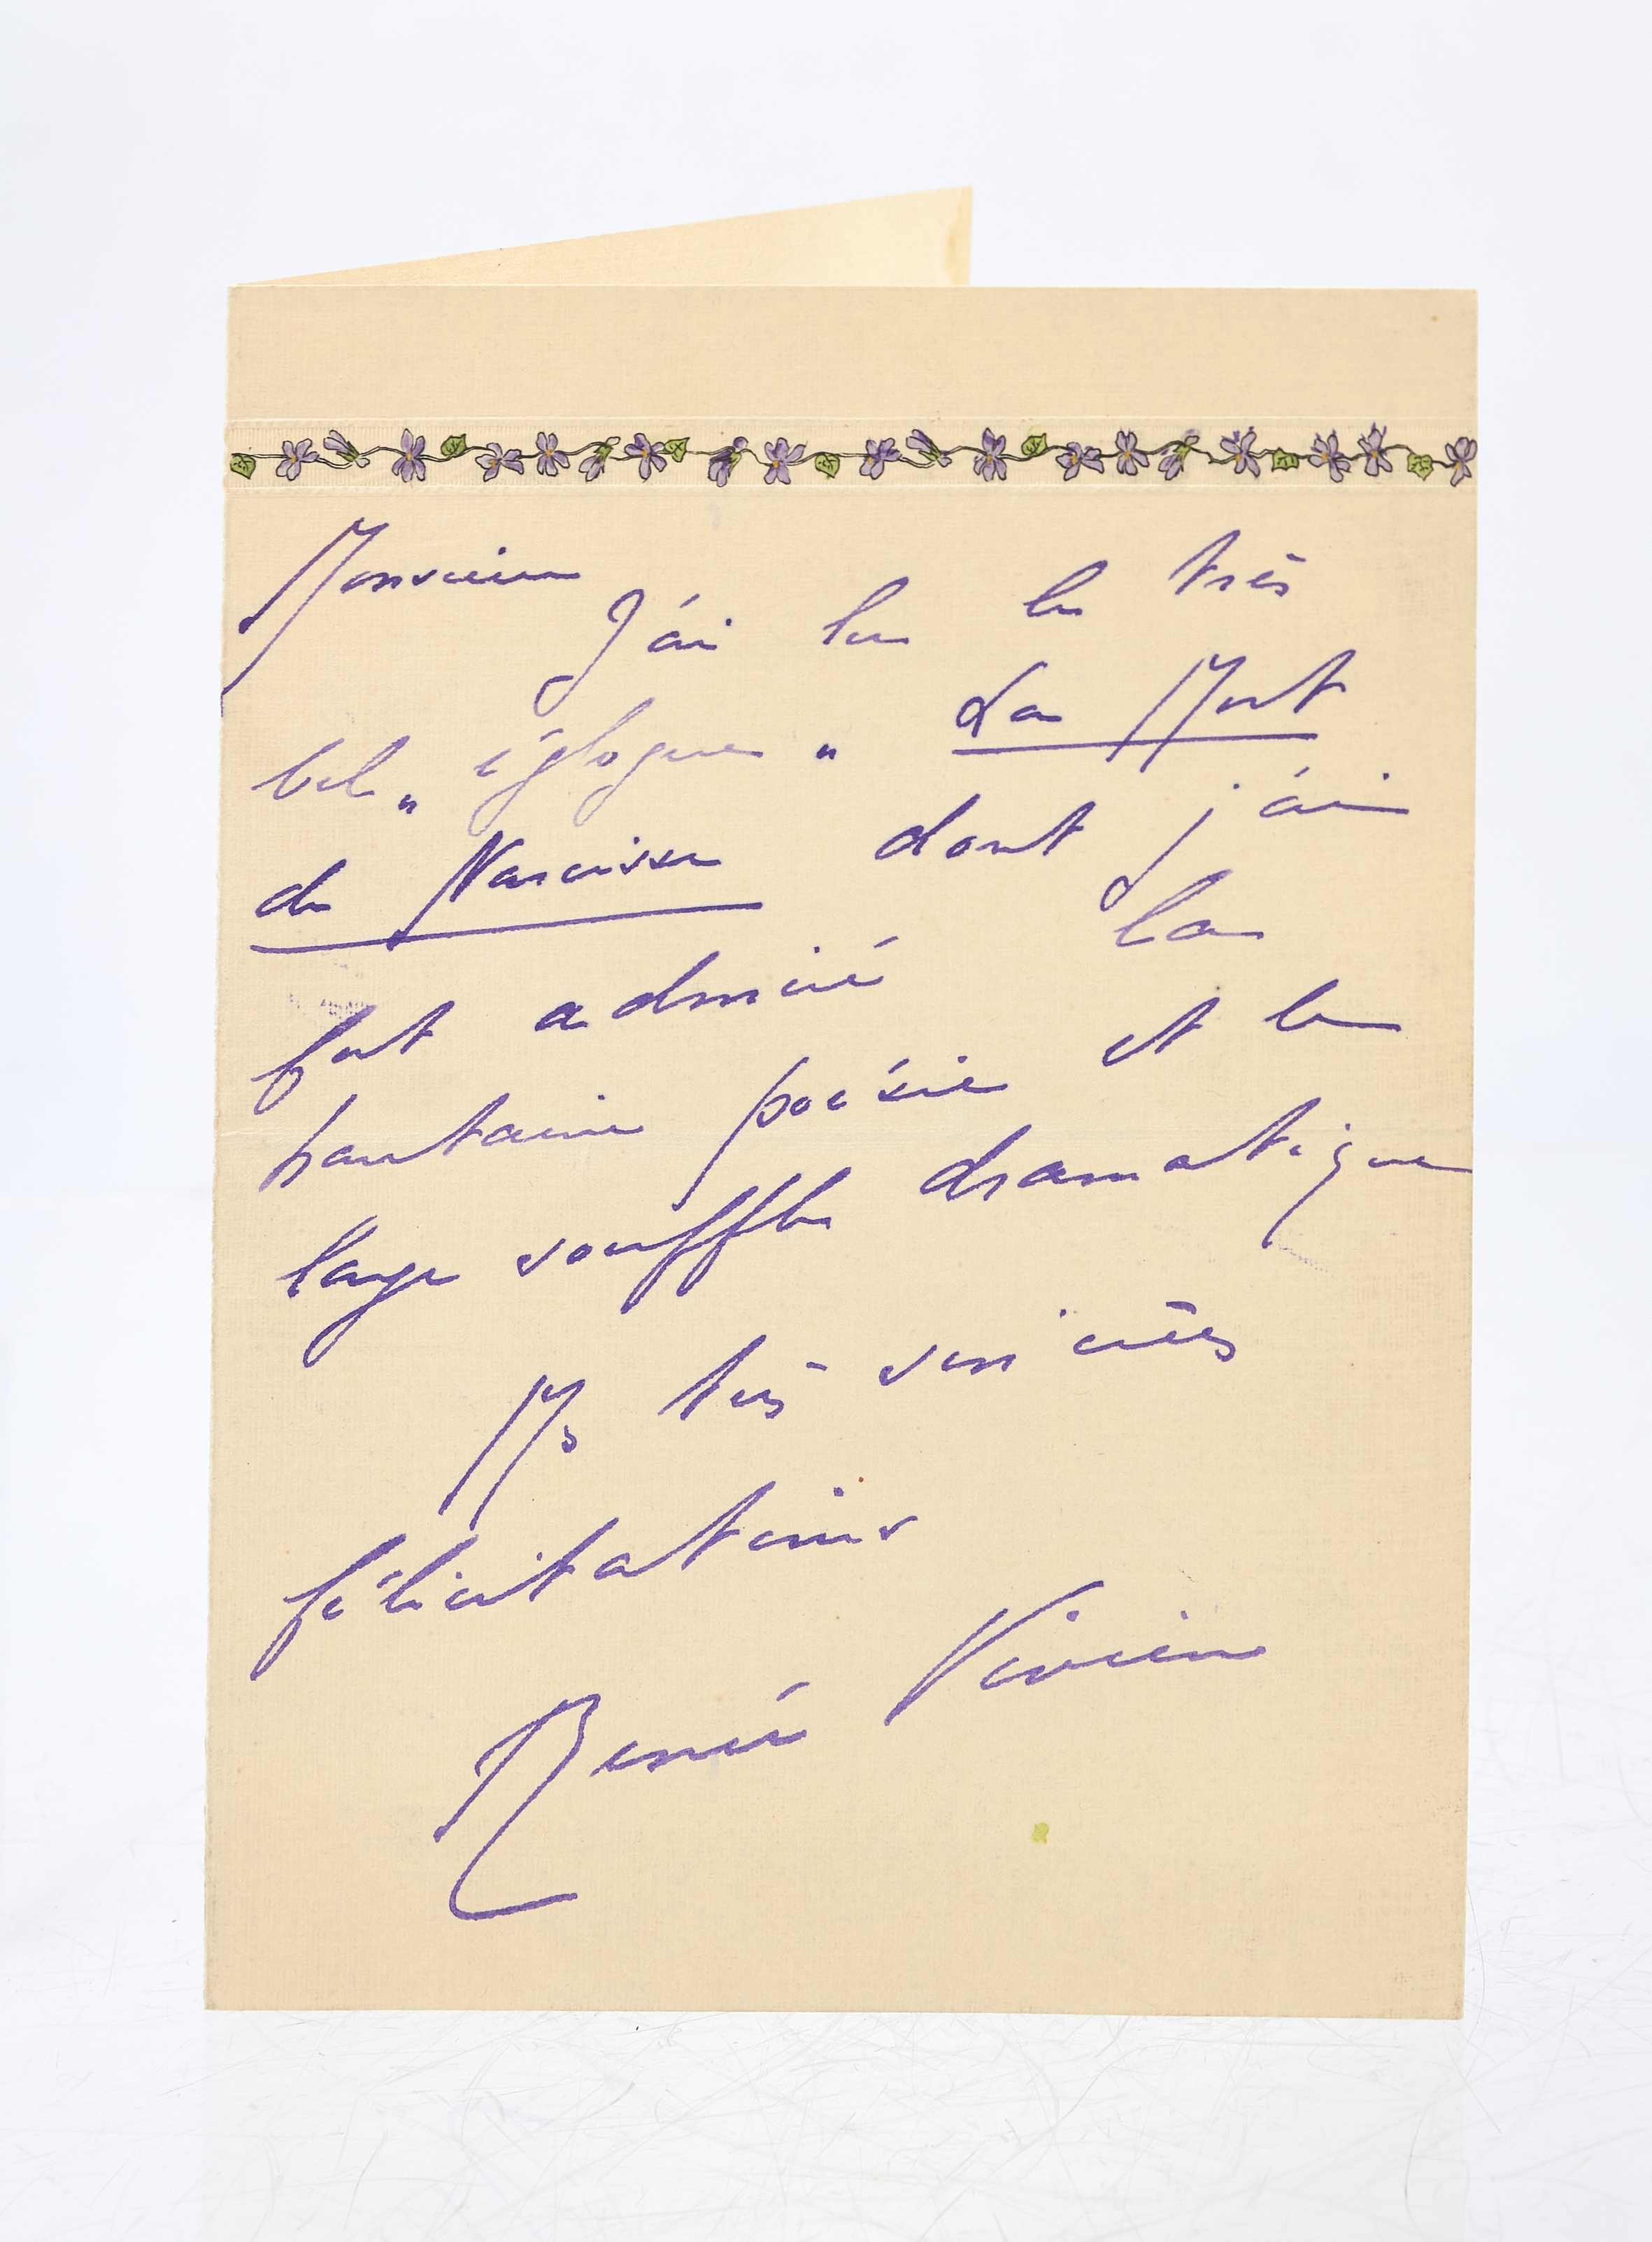 Monsieur
J'ai lu le très
bel „ églogue „ La Mort
de Narcisse dont j'ai
fort admiré la
hautaine poésie et le
large souffle dramatique
Mes très sincères
félicitations
Renée Vivien